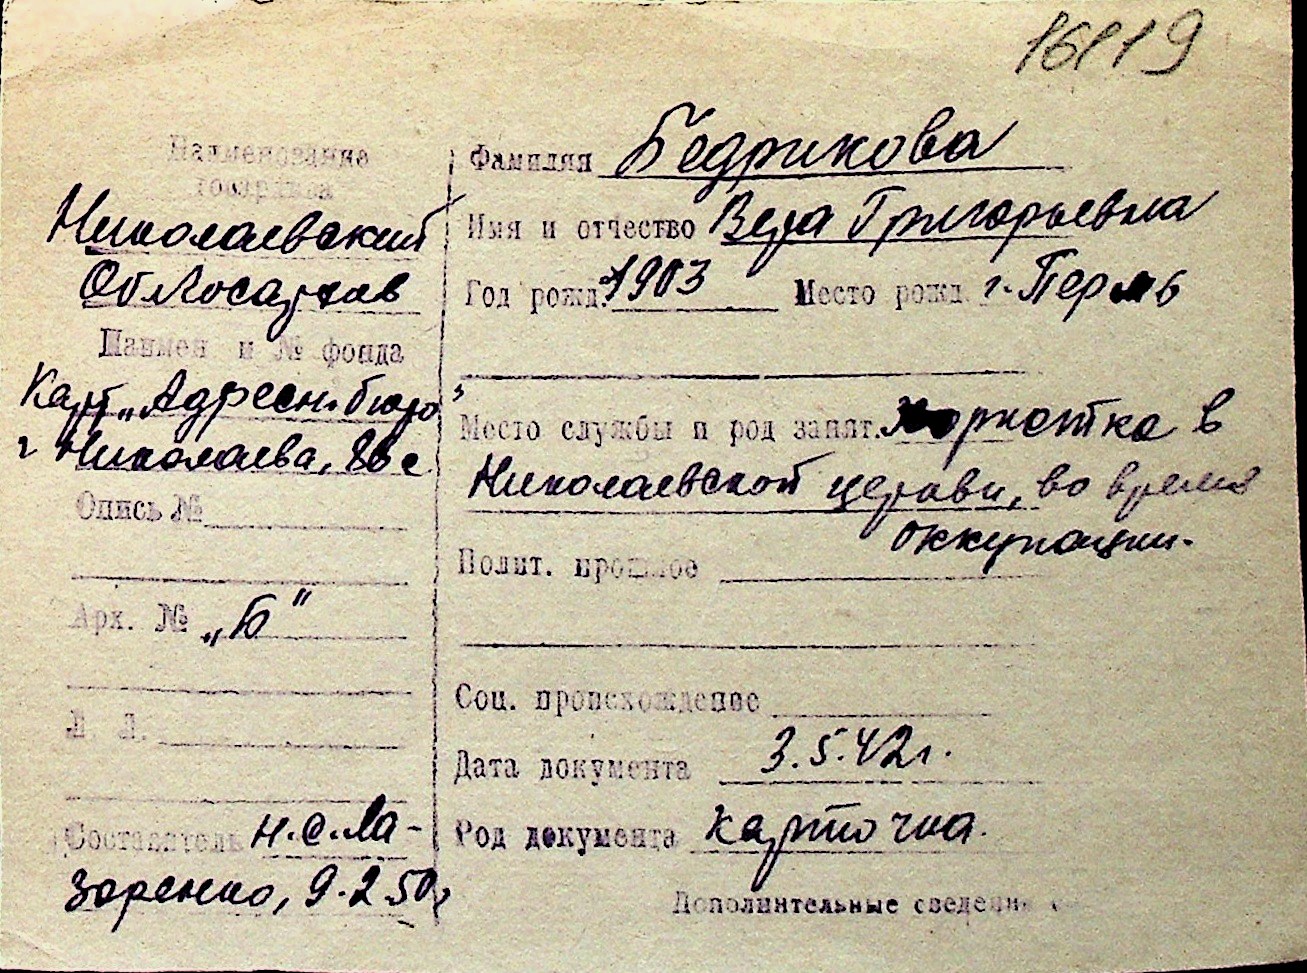 16119
Наименование
госархива
Николаевский
Облгосархив
Наимен и № фонда
Карт. „Адресн. бюро"
г Николаева, 86 с.
Опись №
Арх. № „Б"
Л. Л.
Составитель Н.С. Ла-
заренко, 9.2.50,
Фамилия Бедрикова
Имя и отчество Вера Григорьевна
Год рожд. 1903 Место рожд г. Пермь
Место службы и род занят. хористка в
Николаевской церкви, во время
оккупации.
Полит. прошлое
Соц. происхождение
Дата документа 3.5.42 г.
Род документа карточка.
Дополнительные сведения